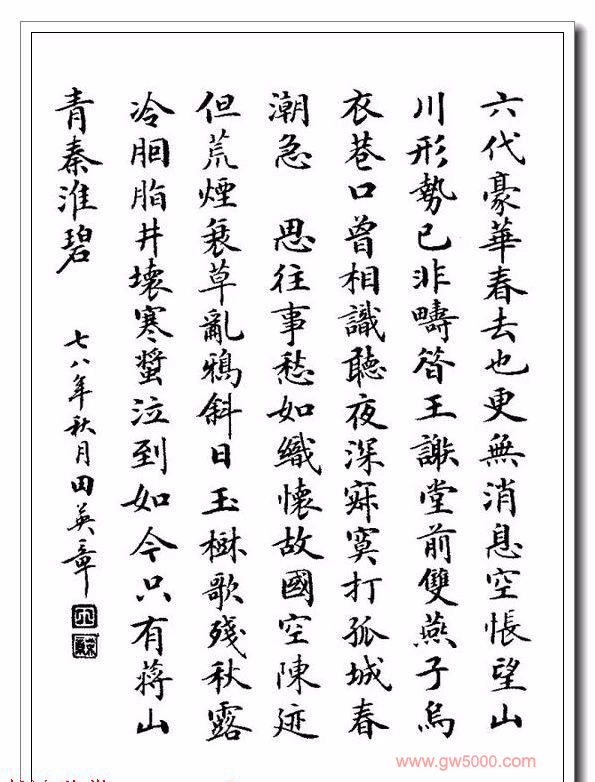 六代豪華春去也更無消息空悵望山
川形勢已非疇昔王謝堂前雙燕子烏
衣巷口曾相識聽夜深寂寞打孤城春
潮急 思往事愁如織懷故國空陳迹
但荒煙衰草亂鴉斜日玉樹歌殘秋露
冷胭脂井壞寒螿泣到如今只有蔣山
青秦淮碧 七八年秋月田英章
www.gw5000.com